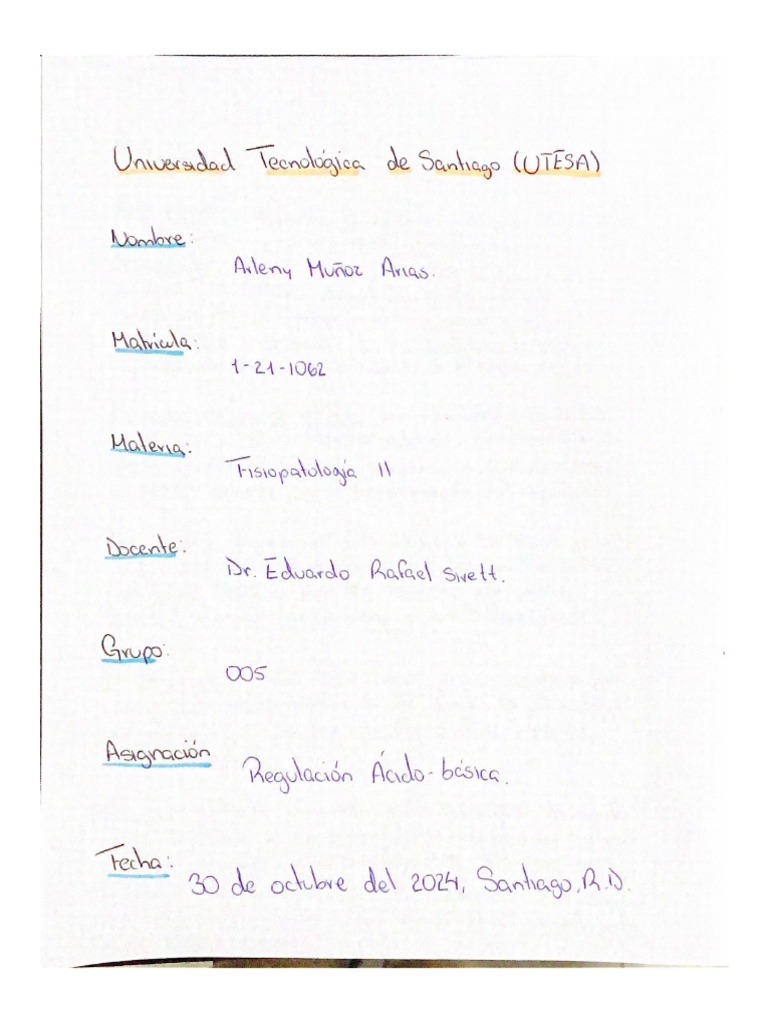 Universidad Tecnológica de Santiago (UTESA)
Nombre:
Arleny Muñoz Arias.
Matrícula:
1-21-1062
Materia:
Fisiopatología II
Docente:
Dr. Eduardo Rafael Sivett.
Grupo:
005
Asignación
Regulación Ácido-básica.
Fecha:
30 de octubre del 2024, Santiago, R.D.